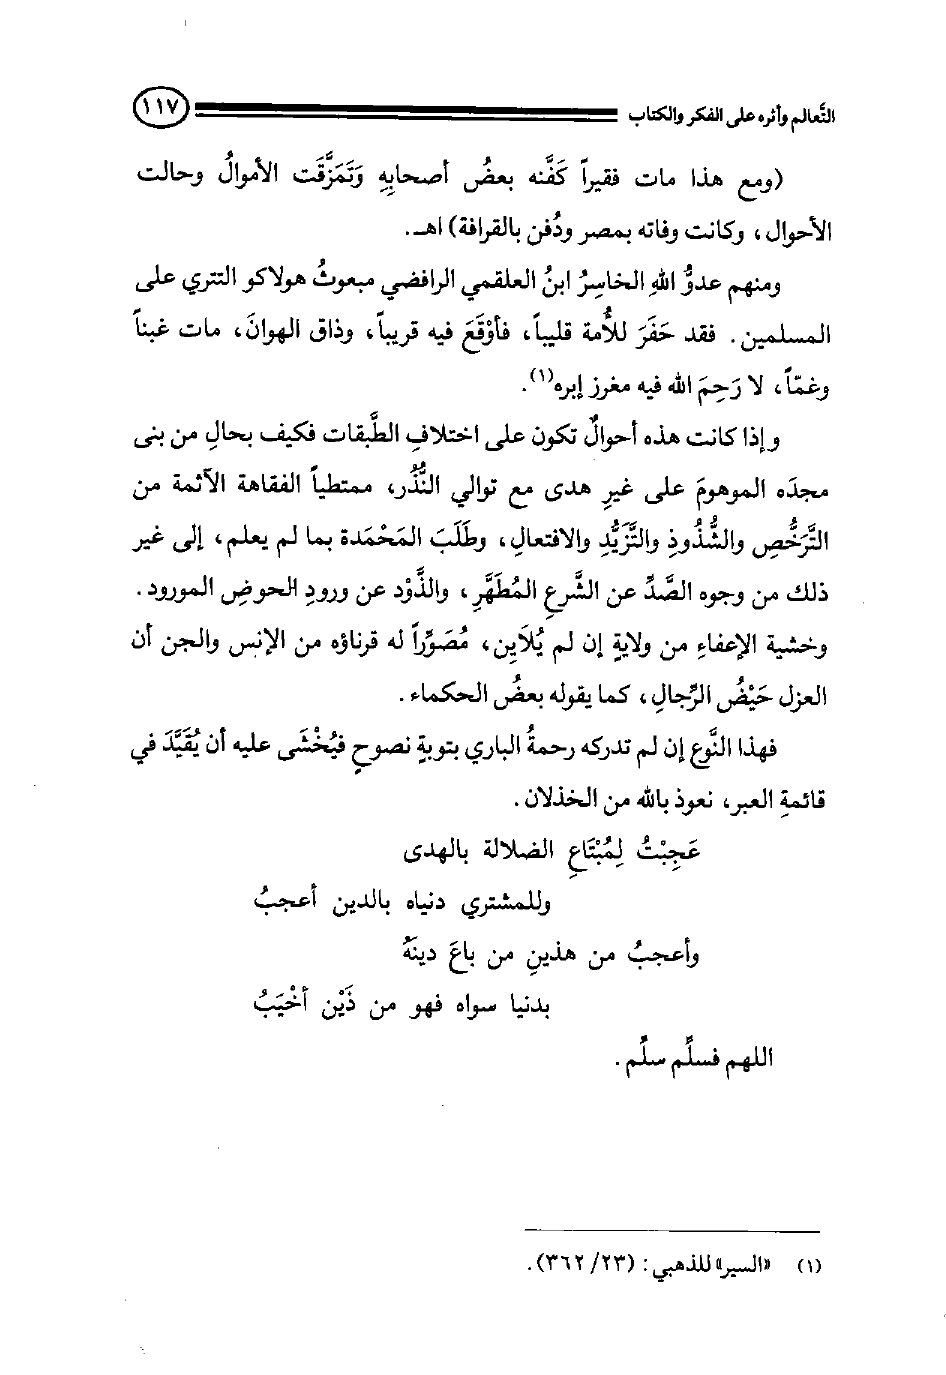 التَّعالم وأثره على الفكر والكتاب ١١٧
(ومع هذا مات فقيراً كَفَّنه بعضُ أصحابِهِ وَتَمَزَّقَت الأموالُ وحالت
الأحوال، وكانت وفاته بمصر ودُفن بالقرافة) اهـ.
ومنهم عدوُّ اللهِ الخاسِرُ ابنُ العلقمي الرافضي مبعوثُ هولاكو التتري على
المسلمين. فقد حَفَرَ للأُمة قليباً، فأَوْقَعَ فيه قريباً، وذاق الهوانَ، مات غبناً
وغمّاً، لا رَحِمَ الله فيه مغرز إبره(١).
وإذا كانت هذه أحوالٌ تكون على اختلافِ الطَّبقات فكيف بحالِ من بنى
مجدَه الموهومَ على غيرِ هدى مع توالي النُّذُر، ممتطياً الفقاهة الآثمة من
التَّرَخُّصِ والشُّذُوذِ والتَّزَيُّدِ والافتعالِ، وطَلَبَ المَحْمَدة بما لم يعلم، إلى غير
ذلك من وجوه الصَّدِّ عن الشَّرعِ المُطَهَّرِ، والذَّوْد عن ورودِ الحوضِ المورود.
وخشية الإعفاءِ من ولايةٍ إن لم يُلاَيِن، مُصَوِّراً له قرناؤه من الإنس والجن أن
العزل حَيْضُ الرِّجالِ، كما يقوله بعضُ الحكماء.
فهذا النَّوع إن لم تدركه رحمةُ الباري بتوبةٍ نصوحٍ فيُخْشَى عليه أن يُقَيَّدَ في
قائمةِ العبر، نعوذ بالله من الخذلان.
عَجِبْتُ لِمُبْتَاعِ الضلالة بالهدى
وللمشتري دنياه بالدين أعجبُ
وأعجبُ من هذينِ من باعَ دينَهُ
بدنيا سواه فهو من ذَيْن أخْيَبُ
اللهم فسلِّم سلِّم.
(١) «السير» للذهبي: (٢٣/ ٣٦٢).